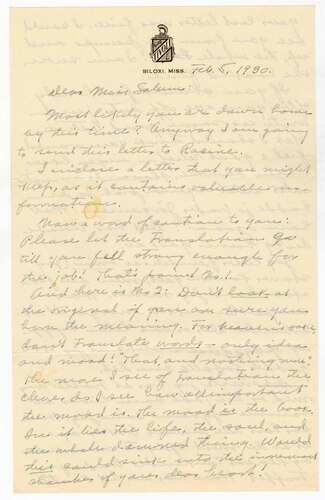 BILOXI, MISS. Feb. 5, 1930.
Dear Miss Solum:
Most likely you are down home
by this time? Anyway I am going
to send this letter to Racine.
I inclose a letter that you might
keep, as it contains valuable in-
formation.
Now a word of caution to you:
Please let the Translation go
till you feel strong enough for
the job! That's point No 1.
And here is No 2: Don't look at
the original if you are sure you
have the meaning. For heaven's sake,
don't translate words - only idea
and mood! "That, and nothing more."
The more I see of Translation the
clearer do I see how all important
the mood is. The mood is the book.
In it lies the life, the soul, and
the whole damned thing. Would
this could sink into the innermost
chamber of your dear heart!